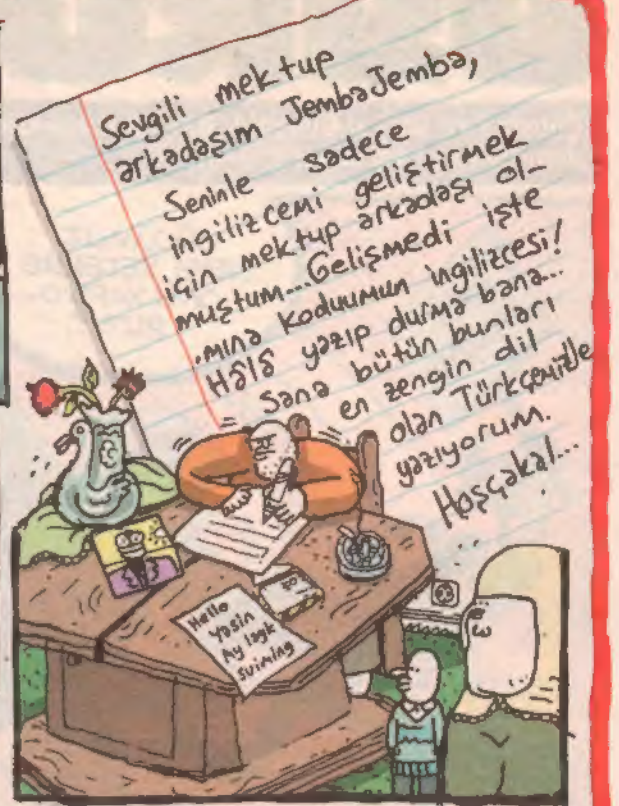 Sevgili mektup
arkadaşım JembaJemba,
Seninle sadece
ingilizcemi geliştirmek
için mektup arkadaşı ol-
muştum...Gelişmedi işte
.mına koduumun ingilizcesi!
Hâlâ yazıp durma bana...
Sana bütün bunları
en zengin dil
olan Türkçemizle
yazıyorum.
Hoşçakal...
Hello
Yasin
Ay layk
suiming